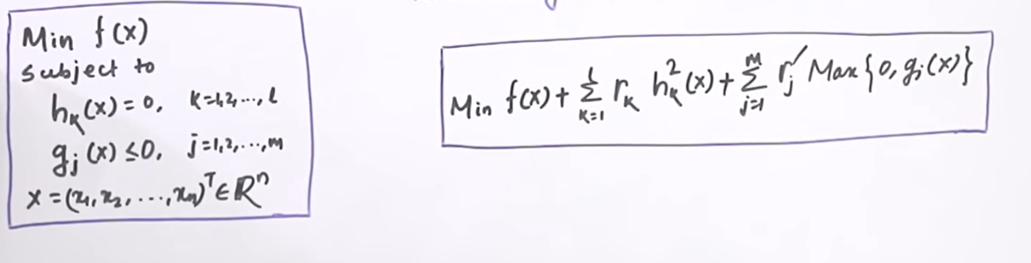 Min f(x)
subject to
hₖ(x) = 0, k=1,2,...,l
gⱼ(x) ≤ 0, j=1,2,...,m
x = (x₁, x₂, ..., xₙ)ᵀ ∈ ℝⁿ
Min f(x) + ∑ₖ₌₁ˡ rₖ hₖ²(x) + ∑ⱼ₌₁ᵐ rⱼ′ Max{0, gⱼ(x)}